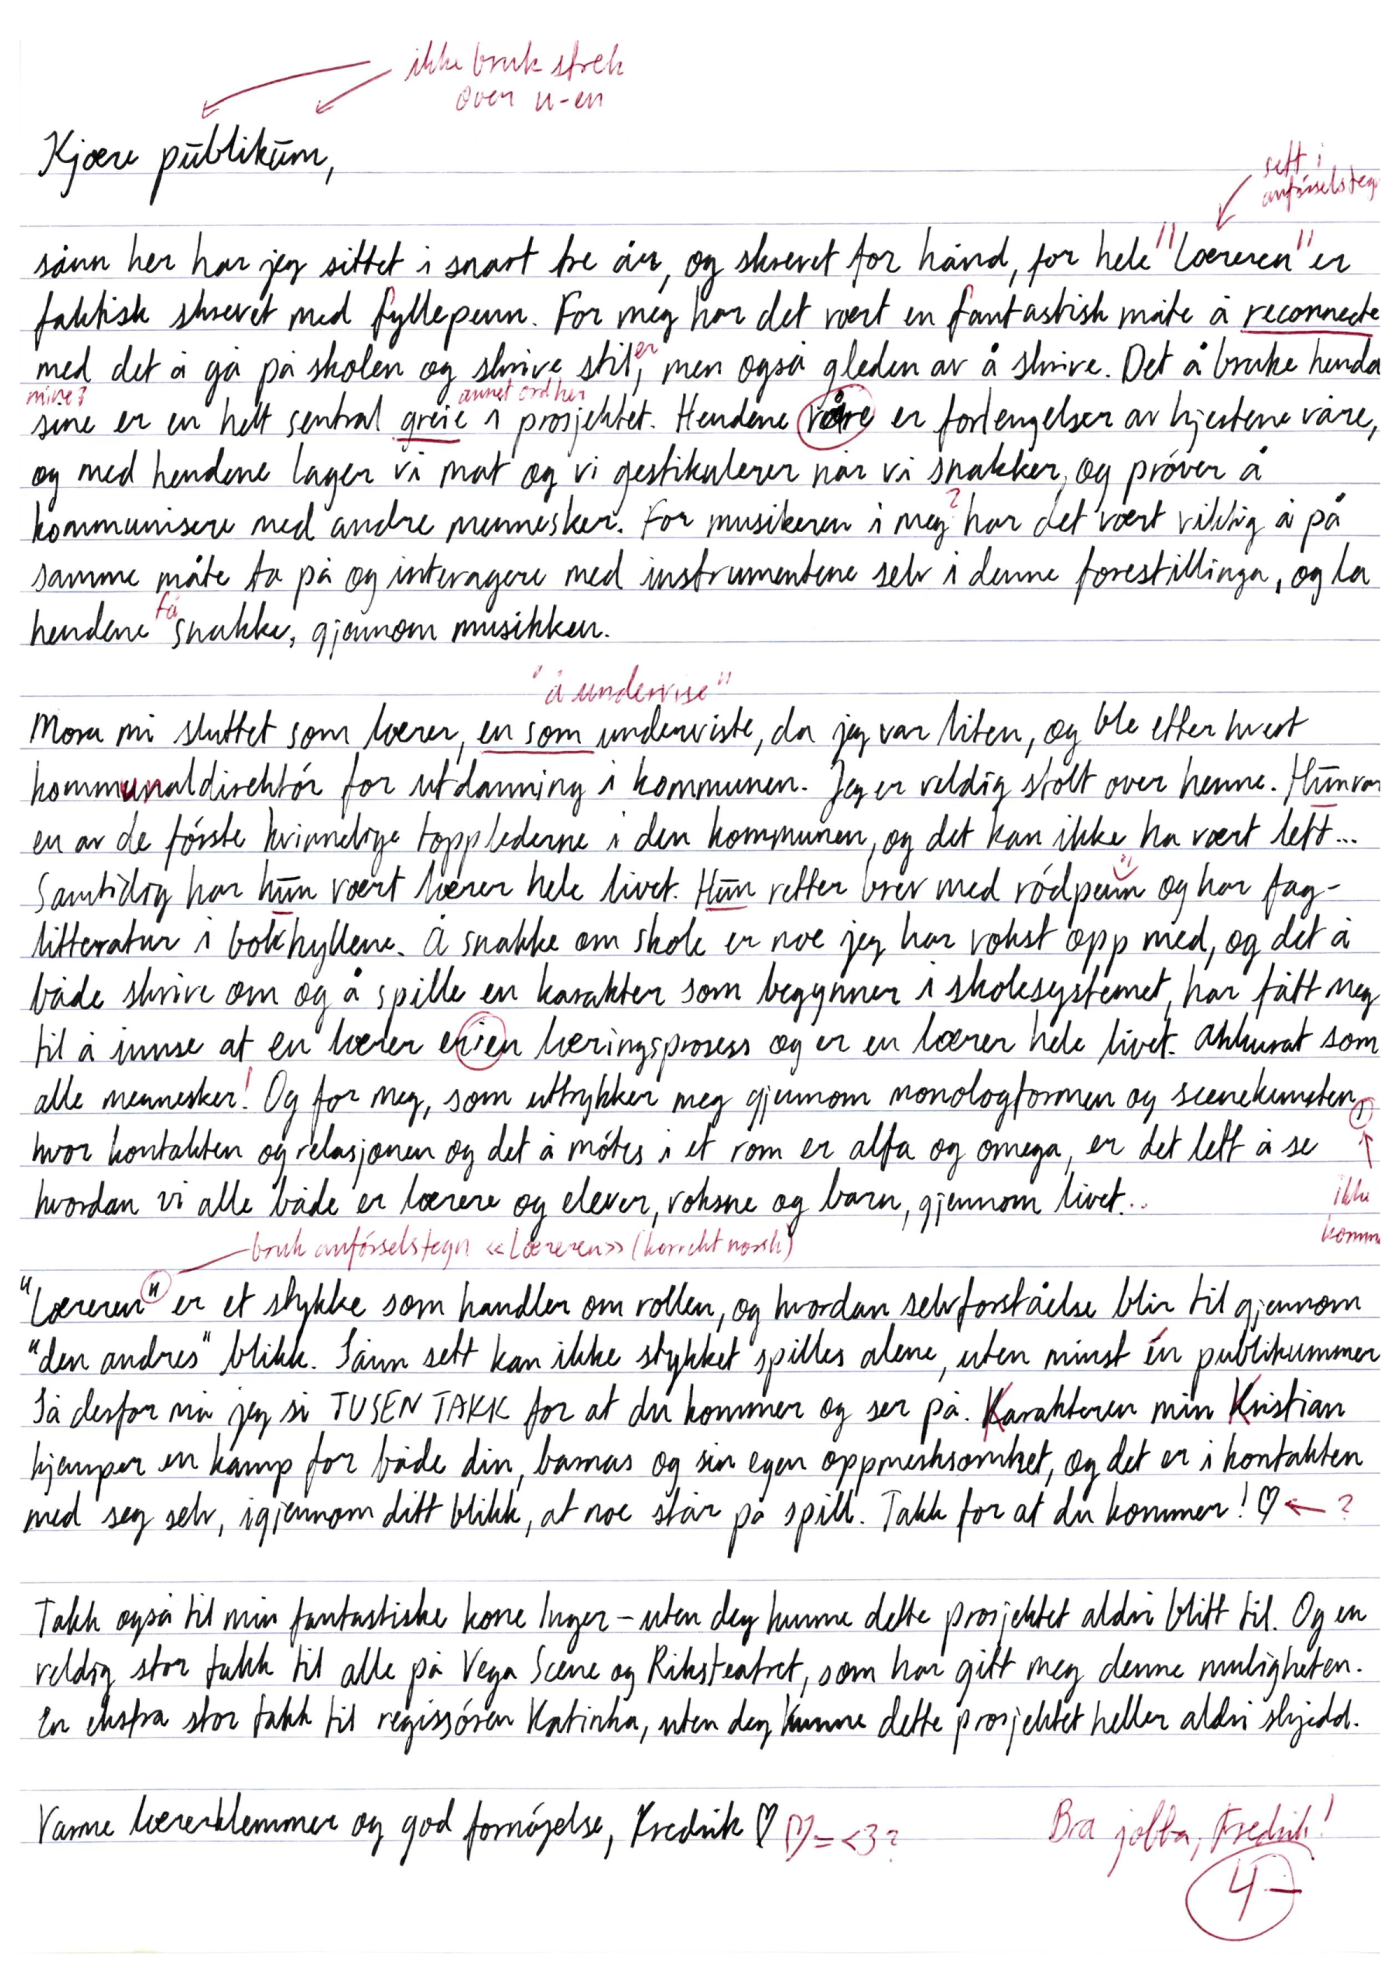 ikke bruk strek
over u-en
Kjære pūblikūm,
sett i
anførselstegn
sånn her har jeg sittet i snart tre år, og skrevet for hånd, for hele "Læreren" er
faktisk skrevet med fyllepenn. For meg har det vært en fantastisk måte å reconnecte
med det å gå på skolen og skrive stil,er men også gleden av å skrive. Det å bruke henda
mine? annet ord her
sine er en helt sentral greie i prosjektet. Hendene våre er forlengelser av hjertene våre,
og med hendene lager vi mat og vi gestikulerer når vi snakker, og prøver å
kommunisere med andre mennesker. For musikeren i meg ? har det vært viktig å på
samme måte ta på og interagere med instrumentene selv i denne forestillinga, og la
hendene få snakke, gjennom musikken.
"å undervise"
Mora mi sluttet som lærer, en som underviste, da jeg var liten, og ble etter hvert
kommunaldirektør for utdanning i kommunen. Jeg er veldig stolt over henne. Hūn var
en av de første kvinnelige topplederne i den kommunen, og det kan ikke ha vært lett...
Samtidig har hūn vært lærer hele livet. Hūn retter brev med rødpenn og har fag-
litteratur i bokhyllene. Å snakke om skole er noe jeg har vokst opp med, og det å
både skrive om og å spille en karakter som begynner i skolesystemet, har fått meg
til å innse at en lærer er i en læringsprosess og er en lærer hele livet. Akkurat som
alle mennesker! Og for meg, som uttrykker meg gjennom monologformen og scenekunsten,
hvor kontakten og relasjonen og det å møtes i et rom er alfa og omega, er det lett å se
hvordan vi alle både er lærere og elever, voksne og barn, gjennom livet...
ikke
komma
bruk anførselstegn «Læreren» (korrekt norsk)
"Læreren" er et stykke som handler om rollen, og hvordan selvforståelse blir til gjennom
"den andres" blikk. Sånn sett kan ikke stykket spilles alene, uten minst én publikummer
Så derfor må jeg si TUSEN TAKK for at du kommer og ser på. Karakteren min Kristian
kjemper en kamp for både din, barnas og sin egen oppmerksomhet, og det er i kontakten
med seg selv, igjennom ditt blikk, at noe står på spill. Takk for at du kommer! ♡ ← ?
Takk også til min fantastiske kone Inger – uten deg kunne dette prosjektet aldri blitt til. Og en
veldig stor takk til alle på Vega Scene og Riksteatret, som har gitt meg denne muligheten.
En ekstra stor takk til regissøren Katinka, uten deg kunne dette prosjektet heller aldri skjedd.
Varme lærerklemmer og god fornøyelse, Fredrik ♡ ♡ = <3?
Bra jobba, Fredrik!
4-